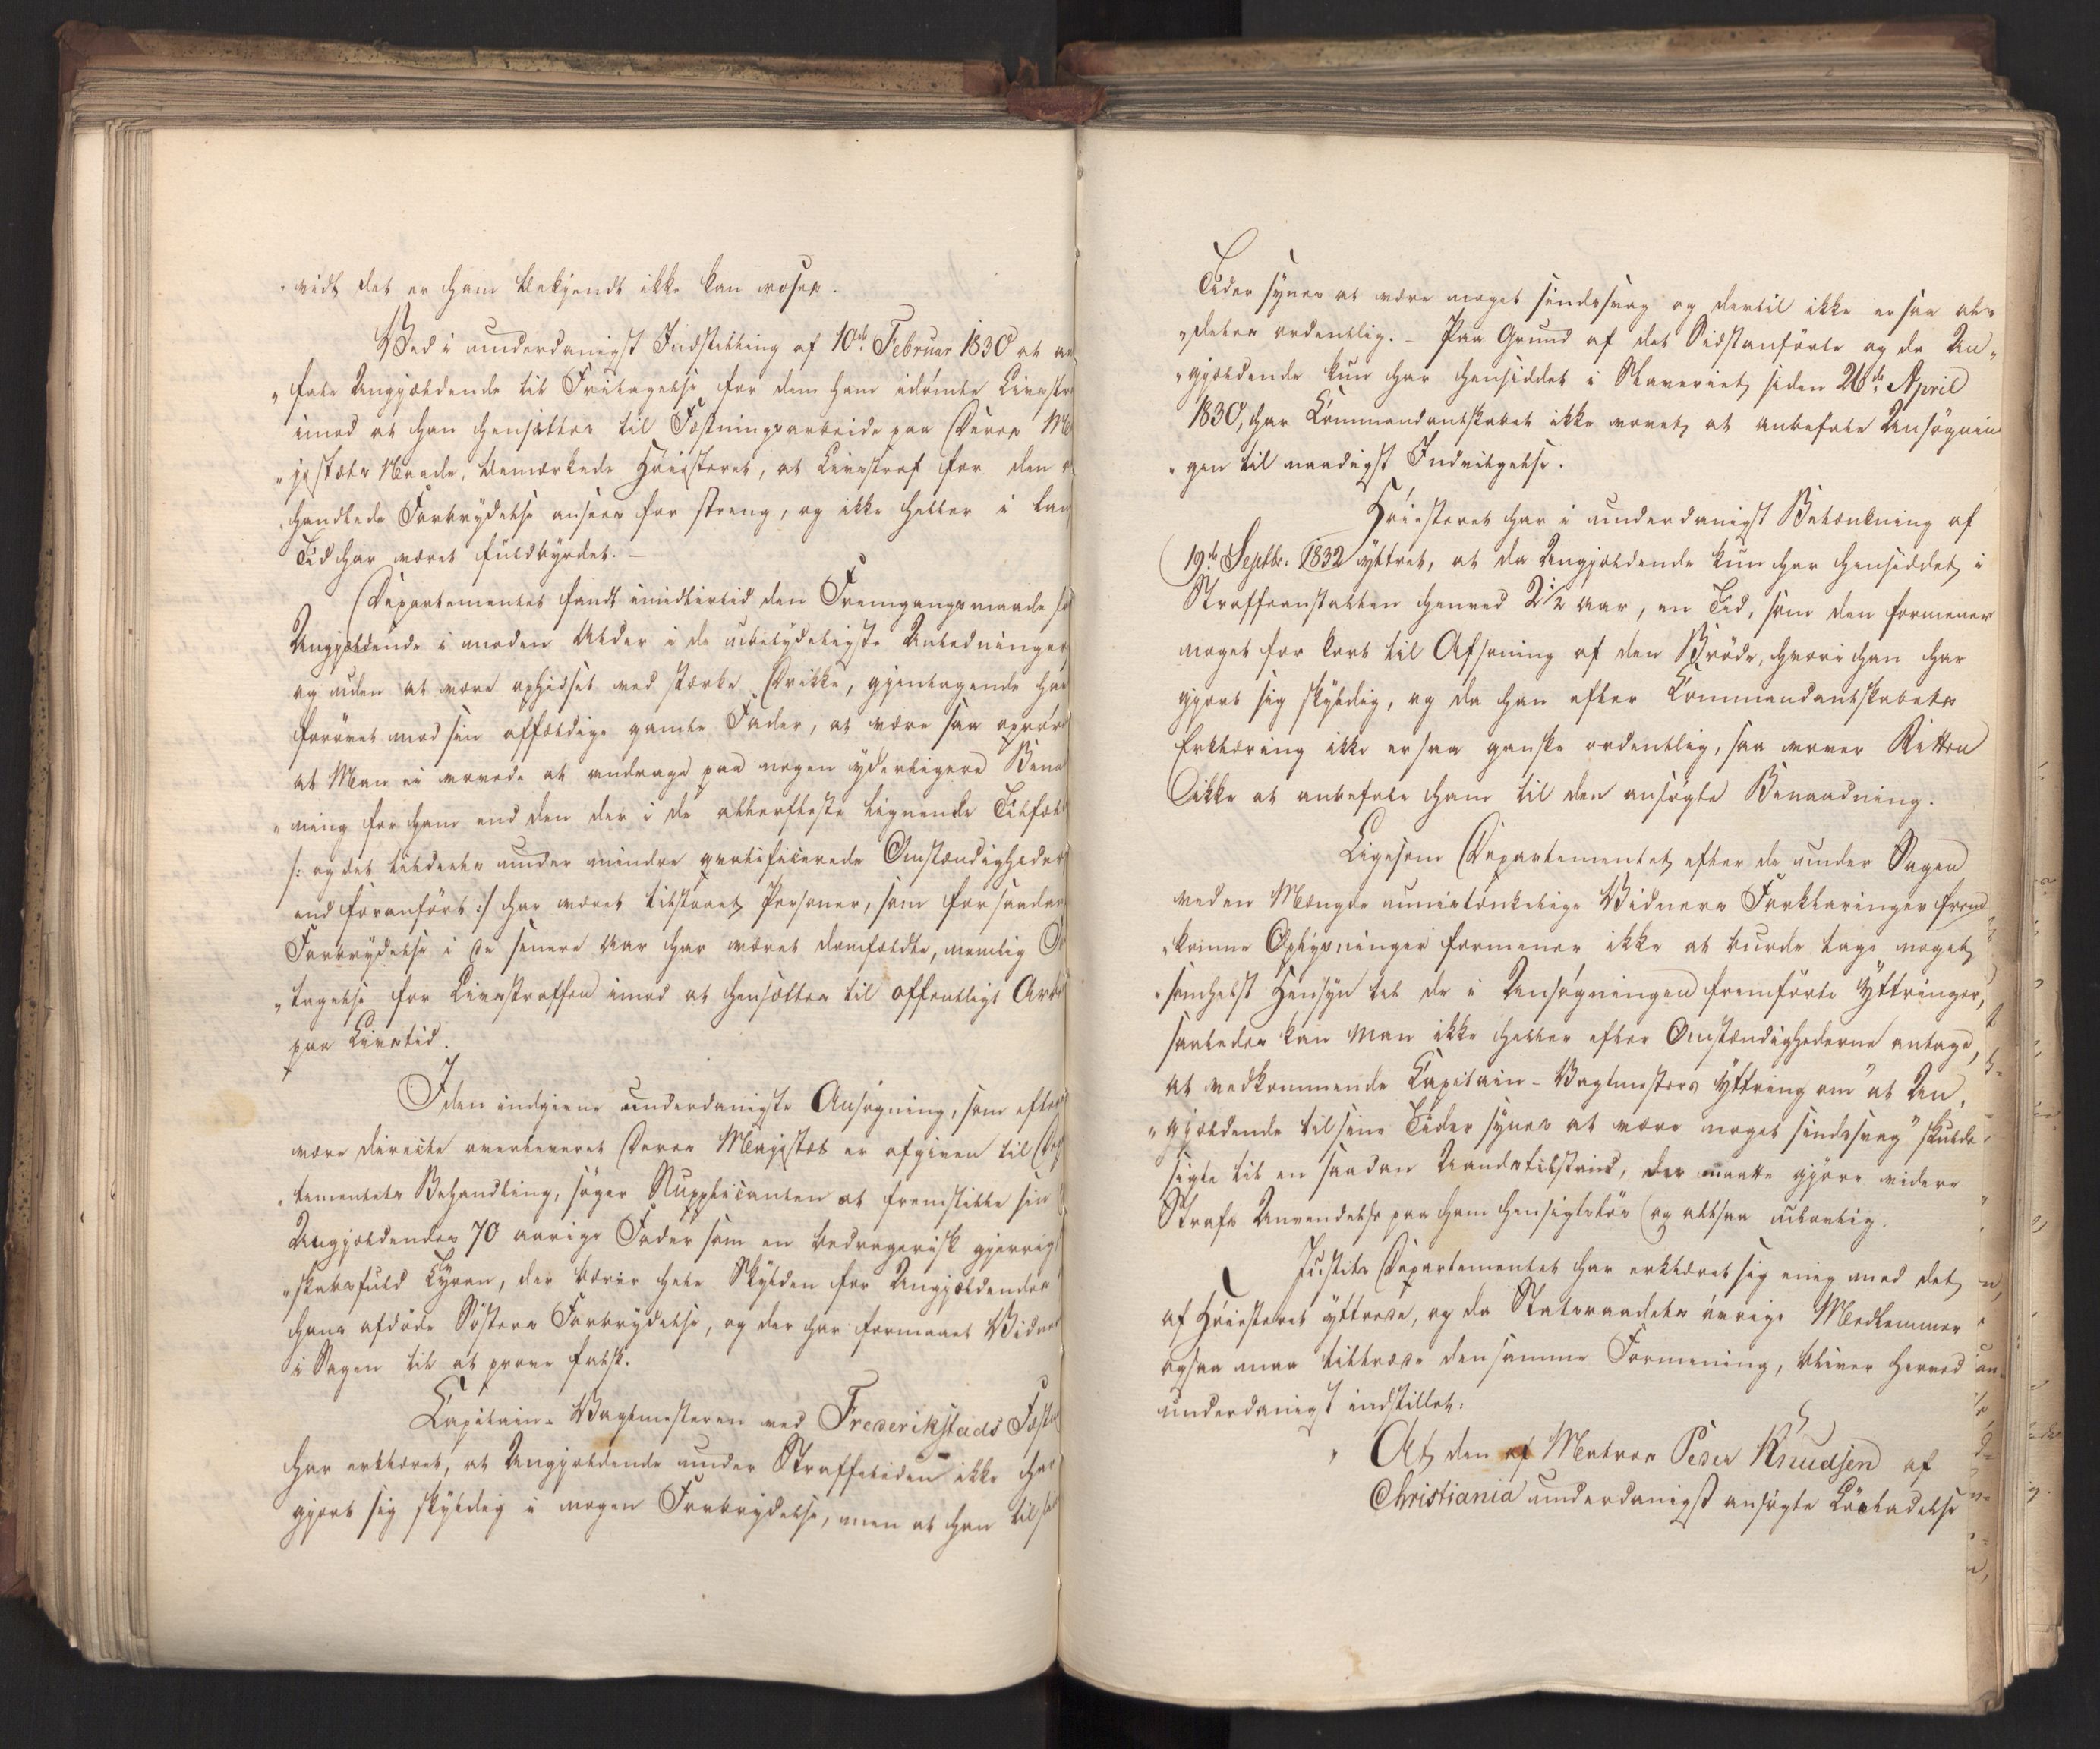 „vidt det er ham bekjendt ikke kan roses.
Ved i underdanigst Indstilling af 10de Februar 1830 at an
„fale Angjældende til Fritagelse for dem ham idømte Livsstr
imod at han hensættes til Fæstningsarbeide paa Deres Ma
„jestæts Naade, bemærkede Høiesteret, at Livsstraf for den
handlede Forbrydelse ansees for streng, og ikke heller i lang
Tid har været fuldbyrdet. –
Departementet fandt imidlertid den Fremgangsmaade so
Angjældende i moden Alder i de ubetydeligste Anledninger
og uden at være ophidset ved stærke Drikke, gjentagende har
forøvet mod sin affældige gamle Fader, at være saa oprør
at Man ei vovede at andrage paa nogen yderligere Benaa
„ning for ham end den der i de allerfleste lignende Tilfæld
/: og det tildeels under mindre qvalificerede Omstændigheder
end foranført :/ har været tilstaaet Personer, som for saadan
Forbrydelse i de senere Aar har været domfældte, nemlig
„tagelse for Livsstraffen imod at hensættes til offentligt Arbei
paa Livstid.
I den indgivne underdanigste Ansøgning, som efter
være directe overleveret Deres Majestæt er afgiven til Dep
„tementets Behandling, søger Supplicanten at fremstille sin
Angjældendes 70 aarige Fader som en bedragerisk gjerrig
„skabsfuld Tyran, der bærer hele Skylden for Angjældendes
hans afdøde Søsters Forbrydelse, og der har formaaet Vidner
i Sagen til at prove falsk.
Capitain-Vagtmesteren ved Frederikstads Fæstn
har erklæret, at Angjældende under Straffetiden ikke har
gjort sig skyldig i nogen Forbrydelse, men at han til sin
Tider synes at være noget sindssvag og dertil ikke er saa al„
„deles ordentlig. – Paa Grund af det Sidstanførte og da An„
„gjældende kun har hensiddet i Slaveriet siden 26de April
1830, har Commandantskabet ikke vovet at anbefale Ansøgnin
„gen til naadigst Indvilgelse.
Høiesteret har i underdanigst Betænkning af
19de Septbr: 1832 yttret, at da Angjældende kun har hensiddet i
Straffeanstalten henved 2½ Aar, en Tid, som den formener
noget for kort til Afsoning af den Brøde, hvori han har
gjort sig skyldig, og da han efter Commandantskabets
Erklæring ikke er saa ganske ordentlig, saa vover Retten
ikke at anbefale ham til den ansøgte Benaadning.
Ligesom Departementet efter de under Sagen
ved en Mængde umistænkelige Vidners Forklaringer frem
„komne Oplysninger formener ikke at burde tage noget
„somhelst Hensyn til de i Ansøgningen fremførte Yttringer,
saaledes kan man ikke heller efter Omstændighederne antage,
at vedkommende Capitain-Vagtmesters Yttring om "at An„
„gjældende til sine Tider synes at være noget sindssvag" skulde
sigte til en saadan Aandstilstand, der maatte gjøre videre
Strafs Anvendelse paa ham hensigtsløs og altsaa utilraadelig.
Justits Departementet har erklæret sig enig med det
af Høiesteret yttrede, og da Statsraadets øvrige Medlemmer
ogsaa maa tiltræde den samme Formening, bliver herved
underdanigst indstillet:
At den af Matros Peder Knudsen af
Christiania underdanigst ansøgte Løsladelse